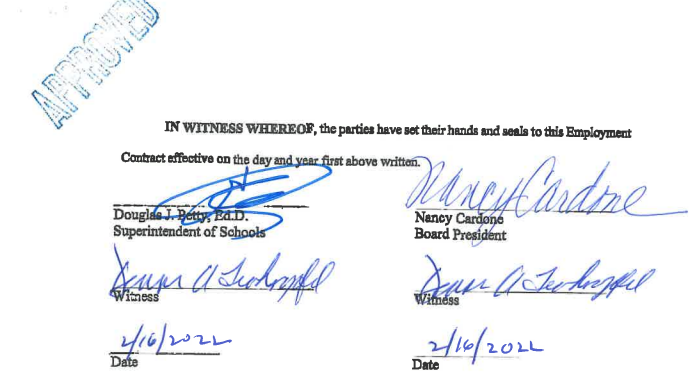 APPROVED
IN WITNESS WHEREOF, the parties have set their hands and seals to this Employment
Contract effective on the day and year first above written.
Nancy Cardone
Douglas J. Petty, Ed.D.
Superintendent of Schools
Nancy Cardone
Board President
Witness
Witness
2/16/2022
Date
2/16/2022
Date